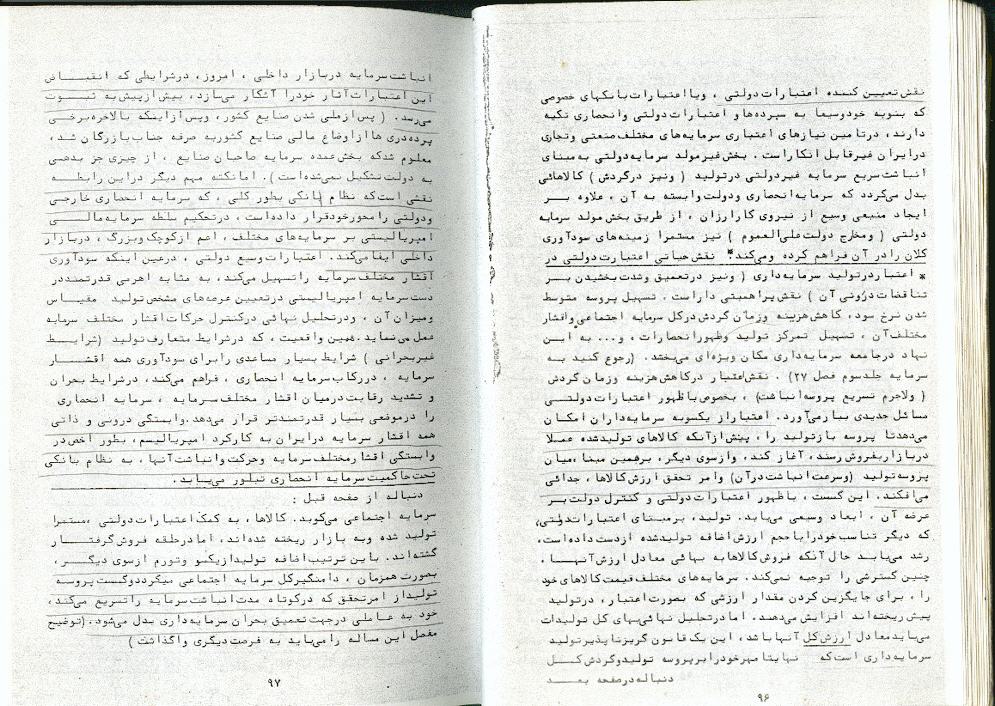 نقش تعیین کننده اعتبارات دولتی ، و یا اعتبارات بانکهای خصوصی
که بنوبه خود وسیعا به سپرده‌ها و اعتبارات دولتی و انحصاری تکیه
دارند ، در تامین نیازهای اعتباری سرمایه‌های مختلف صنعتی و تجاری
در ایران غیر قابل انکار است . بخش غیر مولد سرمایه دولتی به مبنای
انباشت سریع سرمایه غیر دولتی در تولید ( و نیز در گردش ) کالاهائی
بدل می‌گردد که سرمایه انحصاری و دولت وابسته به آن ، علاوه بر
ایجاد منبعی وسیع از نیروی کار ارزان ، از طریق بخش مولد سرمایه
دولتی ( و مخارج دولت علی‌العموم ) نیز مستمرا زمینه‌های سودآوری
کلان را در آن فراهم کرده و می‌کند* نقش حیاتی اعتبارات دولتی در
* اعتبار در تولید سرمایه‌داری ( و نیز در تعمیق و شدت بخشیدن بر
تناقضات درونی آن ) نقش پر اهمیتی دارا ست . تسهیل پروسه متوسط
شدن نرخ سود ، کاهش هزینه و زمان گردش در کل سرمایه اجتماعی و اقشار
مختلف آن ، تسهیل تمرکز تولید و ظهور انحصارات ، و ... به این
نهاد در جامعه سرمایه‌داری مکان ویژه‌ای می‌بخشد . (رجوع کنید به
سرمایه جلد سوم فصل ۲۷) . نقش اعتبار در کاهش هزینه و زمان گردش
( و لاجرم تسریع پروسه انباشت) ، بخصوص با ظهور اعتبارات دولتی
مسائل جدیدی ببار می‌آورد . اعتبار از یکسو به سرمایه‌داران امکان
می‌دهد تا پروسه باز تولید را ، پیش از آنکه کالاهای تولید شده عملا
در بازار بفروش رسند ، آغاز کند ، و از سوی دیگر ، بر همین مبنا ،میان
پروسه تولید (و سرعت انباشت در آن) و امر تحقق ارزش کالاها ، جدائی
می‌افکند . این گسست ، با ظهور اعتبارات دولتی و کنترل دولت بر
عرضه آن ، ابعاد وسیعی می‌یابد . تولید ، بر مبنای اعتبارات دولتی،
که دیگر تناسب خود را با حجم ارزش اضافه تولید شده از دست داده است ،
رشد می‌یابد حال آنکه فروش کالاها به بهائی معادل ارزش آنها ،
چنین گسترشی را توجیه نمی‌کند . سرمایه‌های مختلف قیمت کالاهای خود
را ، برای جایگزین کردن مقدار ارزشی که بصورت اعتبار ، در تولید
پیش ریخته‌اند افزایش می‌دهند ، اما در تحلیل نهائی بهای کل تولیدات
می‌باید معادل ارزش کل آنها باشد ، این یک قانون گریز ناپذیر تولید
سرمایه‌داری است که نهایتا مهر خود را بر پروسه تولید و گردش کل
دنباله در صفحه بعد
۹۶
انباشت سرمایه در بازار داخلی ، امروز ، در شرایطی که انقباض
این اعتبارات آثار خود را آشکار می‌سازد ، بیش از پیش به ثبوت
می‌رسد . ( پس از ملی شدن صنایع کشور ، و پس از اینکه بالاخره برخی
پرده‌دری‌ها از اوضاع مالی صنایع کشور به صرفه جناب بازرگان شد ،
معلوم شد که بخش عمده سرمایه صاحبان صنایع ، از چیزی جز بدهی
به دولت تشکیل نمی‌شده است ) . اما نکته مهم دیگر در این رابطه
نقشی است که نظام بانکی بطور کلی ، که سرمایه انحصاری خارجی
و دولتی را محور خود قرار داده است ، در تحکیم سلطه سرمایه مالی
امپریالیستی بر سرمایه‌های مختلف ، اعم از کوچک و بزرگ ، در بازار
داخلی ایفا می‌کند . اعتبارات وسیع دولتی ، در عین اینکه سودآوری
اقشار مختلف سرمایه را تسهیل می‌کند ، به مثابه اهرمی قدرتمند در
دست سرمایه امپریالیستی در تعیین عرصه‌های مشخص تولید مقیاس
و میزان آن ، و در تحلیل نهائی در کنترل حرکات اقشار مختلف سرمایه
عمل می‌نماید . همین واقعیت ، که در شرایط متعارف تولید (شرایط
غیر بحرانی ) شرایط بسیار مساعدی را برای سودآوری همه اقشار
سرمایه ، در رکاب سرمایه انحصاری ، فراهم می‌کند ، در شرایط بحران
و تشدید رقابت در میان اقشار مختلف سرمایه ، سرمایه انحصاری
را در موقعی بسیار قدرتمندتر قرار می‌دهد . وابستگی درونی و ذاتی
همه اقشار سرمایه در ایران به کارکرد امپریالیسم ، بطور اخص در
وابستگی اقشار مختلف سرمایه و حرکت و انباشت آنها ، به نظام بانکی
تحت حاکمیت سرمایه انحصاری تبلور می‌یابد .
دنباله از صفحه قبل :
سرمایه اجتماعی می‌کوبد . کالاها ، به کمک اعتبارات دولتی ،مستمرا
تولید شده و به بازار ریخته شده‌اند ، اما در حلقه فروش گرفتار
گشته‌اند . باین ترتیب اضافه تولید از یکسو و تورم از سوی دیگر ،
بصورت همزمان ، دامنگیر کل سرمایه اجتماعی میگردد و گسست پروسه
تولید از امر تحقق که در کوتاه مدت انباشت سرمایه را تسریع می‌کند ،
خود به عاملی در جهت تعمیق بحران سرمایه‌داری بدل می‌شود . (توضیح
مفصل این مساله را می‌باید به فرصت دیگری واگذاشت )
۹۷